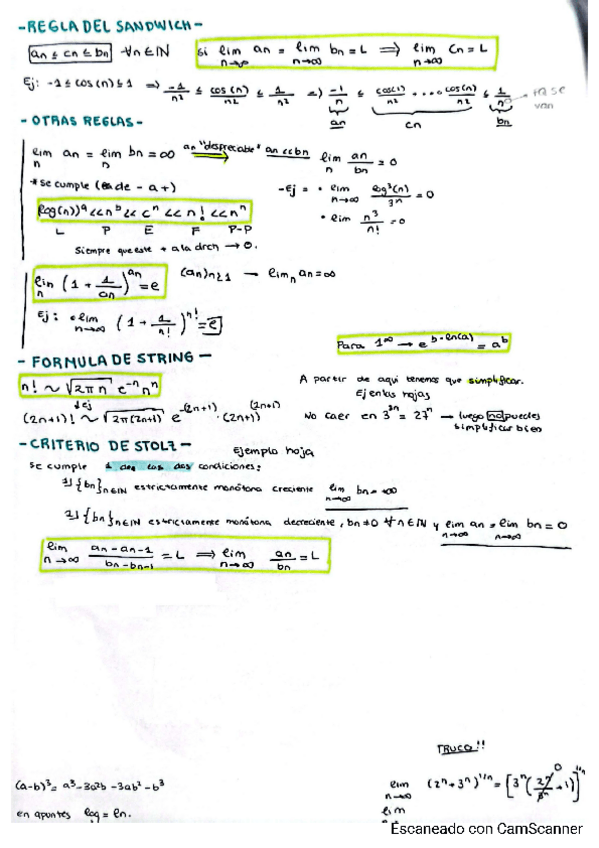 -REGLA DEL SANDWICH-
an ≤ cn ≤ bn ∀n∈ℕ si lim n→∞ an = lim n→∞ bn = L ⟹ lim n→∞ Cn = L
Ej: -1 ≤ cos(n) ≤ 1 ⟹ -1/n² ≤ cos(n)/n² ≤ 1/n² ⟹ -1/n ≤ cos(1)/n² + .... cos(n)/n² ≤ 1/n
an cn bn
- OTRAS REGLAS-
lim n an = lim n bn = ∞ an "despreciable" an << bn lim n an/bn = 0
*se cumple ( de - a +)
-Ej = • lim n→∞ log³(n)/3ⁿ = 0
(log(n))ᵃ << nᵇ << cⁿ << n! << nⁿ
• lim n³/n! = 0
L P E F P-P
Siempre que este + a la drch → 0.
lim n (1 + 1/an)^an = e (an)n≥1 → limn an = ∞
Ej: • lim n→∞ (1 + 1/n!)^n! = e
Para 1^∞ → e^(b·ln(a)) = a^b
- FORMULA DE STRING -
n! ~ √(2πn) e⁻ⁿ nⁿ
A partir de aqui tenemos que simplificar.
Ej en las hojas
dej
(2n+1)! ~ √(2π(2n+1)) e^-(2n+1) · (2n+1)^(2n+1)
No caer en 3³ⁿ = 27ⁿ → luego no puedes
simplificar bien
-CRITERIO DE STOLZ- Ejemplo hoja
Se cumple 1 de las dos condiciones:
1) {bn}n∈ℕ estrictamente monótona creciente lim n→∞ bn = +∞
2) {bn}n∈ℕ estrictamente monótona decreciente, bn≠0 ∀n∈ℕ y lim n→∞ an = lim n→∞ bn = 0
lim n→∞ (an-an-1)/(bn-bn-1) = L ⟹ lim n→∞ an/bn = L
TRUCO!!
(a-b)³ = a³-3a²b-3ab²-b³
lim n→∞ (2ⁿ+3ⁿ)^1/n = [3ⁿ(2ⁿ/3ⁿ+1)]^1/n
0
en apuntes log = ln.
lim
Escaneado con CamScanner